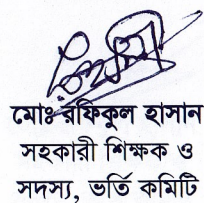 মোঃ রফিকুল হাসান
সহকারী শিক্ষক ও
সদস্য, ভর্তি কমিটি